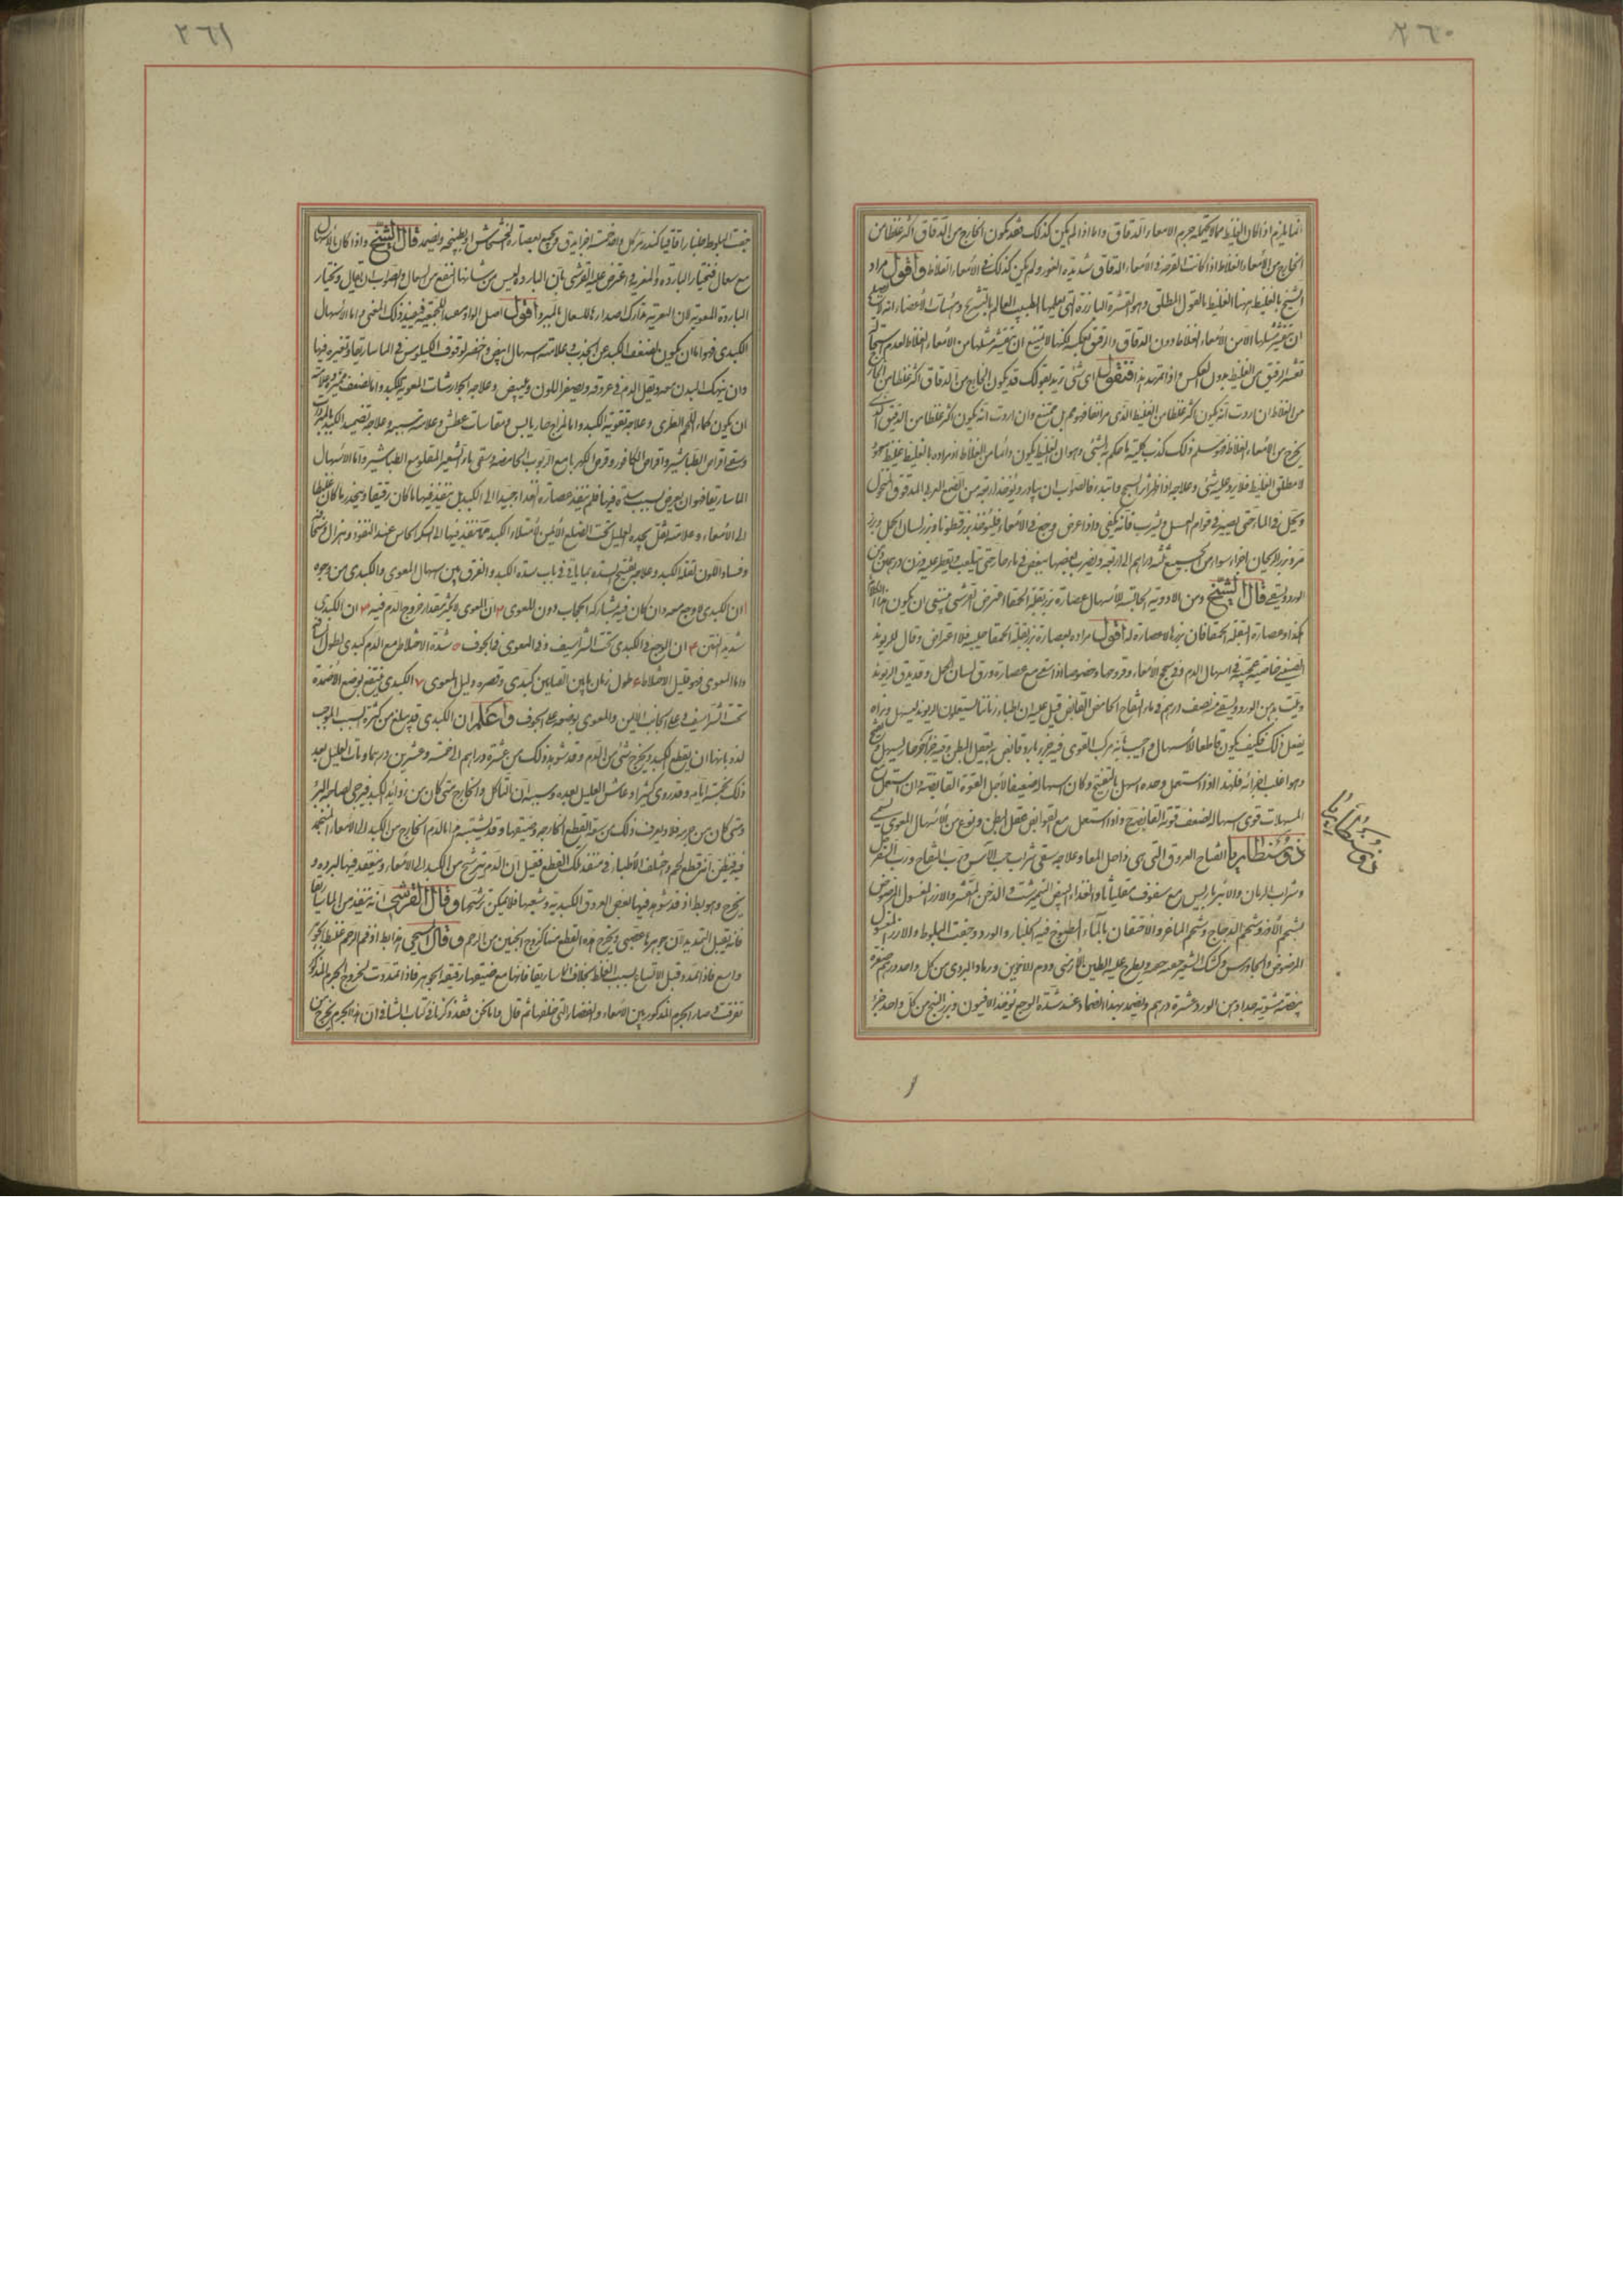 ٢٦٠
انما يلزم اذا كان الغليظ مما لا يحتمله جرم الامعاء الدقاق واما اذا لم يكن كذلك فقد يكون الخارج من الدقاق اكثر غلظا من
الخارج من الامعاء الغلاظ اذا كانت القرحة فى الامعاء الدقاق شديدة الغور ولم يكن كذلك فى الامعاء الغلاظ واقول مراد
الشيخ بالغليظ ههنا الغليظ بالقول المطلق وهو القشرة البارزة التى يعلمها الطبيب العالم بالتشريح وهيئات الاعضاء انه لا
ان تقشر مثلها الا من الامعاء الغلاظ دون الدقاق والرقيق بعكسه لكنها لا يمتنع ان تقشر مثلها من الامعاء الغلاظ لعدم
تقشر الرقيق من الغليظ بدون العكس واذا تمهد هذا فنقول اى شئ تريد بقولك قد يكون الخارج من الدقاق اكثر غلظا من الخارج
من الغلاظ ان اردت انه يكون اكثر غلظا من الغليظ الذى مر انفا فهو محم بل ممتنع وان اردت انه يكون اكثر غلظا من الدقيق الذى
يخرج من الامعاء الغلاظ فهو مسلم وذلك كذب كلية ما حكم به الشئ وهو ان الغليظ يكون دائما من الغلاظ اذ مراده بالغليظ غليظ
لا مطلق الغليظ فلا يرد عليه شئ وعلاجه اذا ظهر اثر السحج وابتدء فالصواب ان يبادر ويؤخذ اربعة من الصمغ العربى المدقوق المنخول
ويحل فى الماء حتى يصير فى قوام العسل ويشرب فانه يكفى واذا عرض وجع فى الامعاء فليؤخذ بزر قطونا وبزر لسان الحمل وبزر
مرو وبزر الريحان اجزاء سواء من الجميع ثلثة دراهم الى اربعة ويضرب بعضها ببعض فى ماء حار حتى يتلعب ويقطر عليه وزن درهمين دهن
الورد ويسقى قال الشيخ ومن الادوية الحابسة للاسهال عصارة بزر بقلة الحمقاء اعترض القرشى ينبغى ان يكون هذا الكلام
هكذا وعصارة البقلة الحمقاء فان بزرها لا عصارة له اقول مراده بعصارة بزر بقلة الحمقاء حليبه فلا اعتراض وقال للريوند
الصينى خاصية عجيبة فى اسهال الدم وفى سحج الامعاء وقروحها وخصوصا اذا سقى مع عصارة ورق لسان الحمل وقد يدق الريوند
ويلت بدهن الورد ويسقى منه نصف درهم فى ماء التفاح الحامض القابض قيل عليه ان اطباء زماننا يستعملون الريوند ليسهل ونراه
يفعل ذلك فكيف يكون قاطعا للاسهال واجيب بانه مركب القوى فيه جزء بارد قابض به يعقل البطن وفيه جزء آخر حار يسهل
وهو اغلب اجزائه فلهذا اذا استعمل وحده اسهل بالتفتيح وكان اسهاله ضعيفا لاجل القوة القابضة وان استعمل مع
المسهلات قوى اسهاله لضعف قوته القابضة واذا استعمل مع القوابض عقل البطن ونوع من الاسهال المعوى يسمى
ذوسنطاريا انفتاح العروق التى هى داخل المعا وعلاجه سقى شراب حب الآس ورب التفاح ورب السفرجل
وشراب الرمان والانبرباريس مع سفوف مقلياثا والغذاء البيض النيمرشت والدخن المقشر والارز المغسول المرضوض
بشحم الاوز وشحم الدجاج وشحم الماعز والاحتقان بالماء المطبوخ فيه الجلنار والورد وجفت البلوط والارز المغسول
المرضوض والجاورس وكشك الشعير ويطرح عليه الطين الارمنى ودم الاخوين ورماد البردى من كل واحد درهم صفرة
بيضة مشوية جدا دهن الورد عشرة دراهم وليضمد بهذا الضماد عند شدة الوجع يؤخذ الافيون وبزر البنج من كل واحد جزء
ذوسنطاريا
٢٦١
جفت البلوط جلنار اقاقيا كندر من كل واحد خمسة اجزاء يدق ويجمع بعصارة الخشخاش او طبيخه ويضمد قال الشيخ واذا كان بالاسهال
مع سعال فتختار الباردة والمغرية اعترض عليه القرشى بان البارد ليس من شانها النفع من السعال والصواب ان يقال ويختار
الباردة المغرية لان المغرية تدارك اضرارها للسعال بالتبريد اقول اصل الواو معه للجمعية فيفيد ذلك المعنى واما الاسهال
الكبدى فهو اما ان يكون لضعف الكبد عن الجذب وعلامته اسهال ابيض واخضر لوقوف الكيلوس فى الماساريقا وتغيره فيها
وان ينهك البدن معه ويقل الدم فى عروقه ويصفر اللون ويبيض وعلاجه الجوارشات المقوية للكبد واما لضعف مميزته وعلامته
ان يكون كماء اللحم الطرى وعلاجه تقوية الكبد واما لمزاج حار يابس ومقاسات عطش وعلامته سببه وعلاجه تضميد الكبد بالمبردات
وسقى اقراص الطباشير واقراص الكافور وقرص الكهربا مع الربوب الحامضة وسقى ماء الشعير المقلو مع الطباشير واما الاسهال
الماساريقا فهو ان يعرض بسبب سدة فيها فلم ينفذ عصارة الغذاء جيدا الى الكبد بل ينفذ فيها ما كان رقيقا وينحدر ما كان غليظا
الى الامعاء وعلامته ثقل يجده العليل تحت الضلع الايمن لامتلاء الكبد مما ينفذ فيها الى السكر الحابس عند النفوذ وهزال
وفساد اللون لقلة الكبد وعلاجه تفتيح السدة بما ياتى فى باب سدة الكبد والفرق بين اسهال المعوى والكبدى من وجوه
ا ان الكبدى لا وجع معه وان كان فيه بمشاركة الحجاب دون المعوى ٢ ان المعوى لا يكثر مقدار خروج الدم فيه ٣ ان الكبدى
شديد النتن ٤ ان الوجع فى الكبدى تحت الشراسيف وفى المعوى فى الجوف ٥ شدة الاختلاط مع الدم كبدى لطول
واما المعوى فهو قليل الاختلاط ٦ طول زمان ما بين القيامين كبدى وقصره دليل المعوى ٧ الكبدى ينتفع بوضع الاضمدة
تحت الشراسيف الى الجانب الايمن والمعوى بوضعه على الجوف واعلم ان الكبدى قد يبلغ من كثرة السبب الموجب
لذوبانها ان يقطع الكبد ويخرج شئ من الدم وقد شوهد ذلك من عشرة دراهم الى خمسة وعشرين درهما ومات العليل بعد
ذلك بخمسة ايام وقد روى كثيرا وعاش العليل بعده وسببه ان التأكل والخارج متى كان من زوائد الكبد فيرجى لصاحبه البرء
ومتى كان من جرمه فلا ويعرف ذلك من سعة القطع الخارجة وضيقها وقد يشتبه هذا الدم الخارج من الكبد الى الامعاء المنجمد
فيه فيظن انه قطع لحم واختلف الاطباء فى منفذ تلك القطع فقيل ان الدم يترشح من الكبد الى الامعاء وينعقد فيها لبروده و
يخرج وهو بط اذ قد شوهد فيها بعض العروق الكبدية وشعبها فلا يمكن ترشحها وقال القرشى انه ينفذ من الماساريقا
فانه يقبل التمديد لان جوهرها عصبى ويخرج هذه القطع منها كخروج الجنين من الرحم وقال المسيحى هذا بط اذ فم الرحم غليظ الجوهر
واسع فاذا تمدد قبل الاتساع بسبب الغلظ بخلاف الماساريقا فانها مع ضيقها رقيقة الجوهر فاذا تمددت لخروج الجرم المذكور
تفرقت وصار الجرم المذكور بين الامعاء والفضاء التى خلفها ثم قال واما نحن فقد ذكرنا فى كتاب الشافى ان هذا الجرم يخرج من